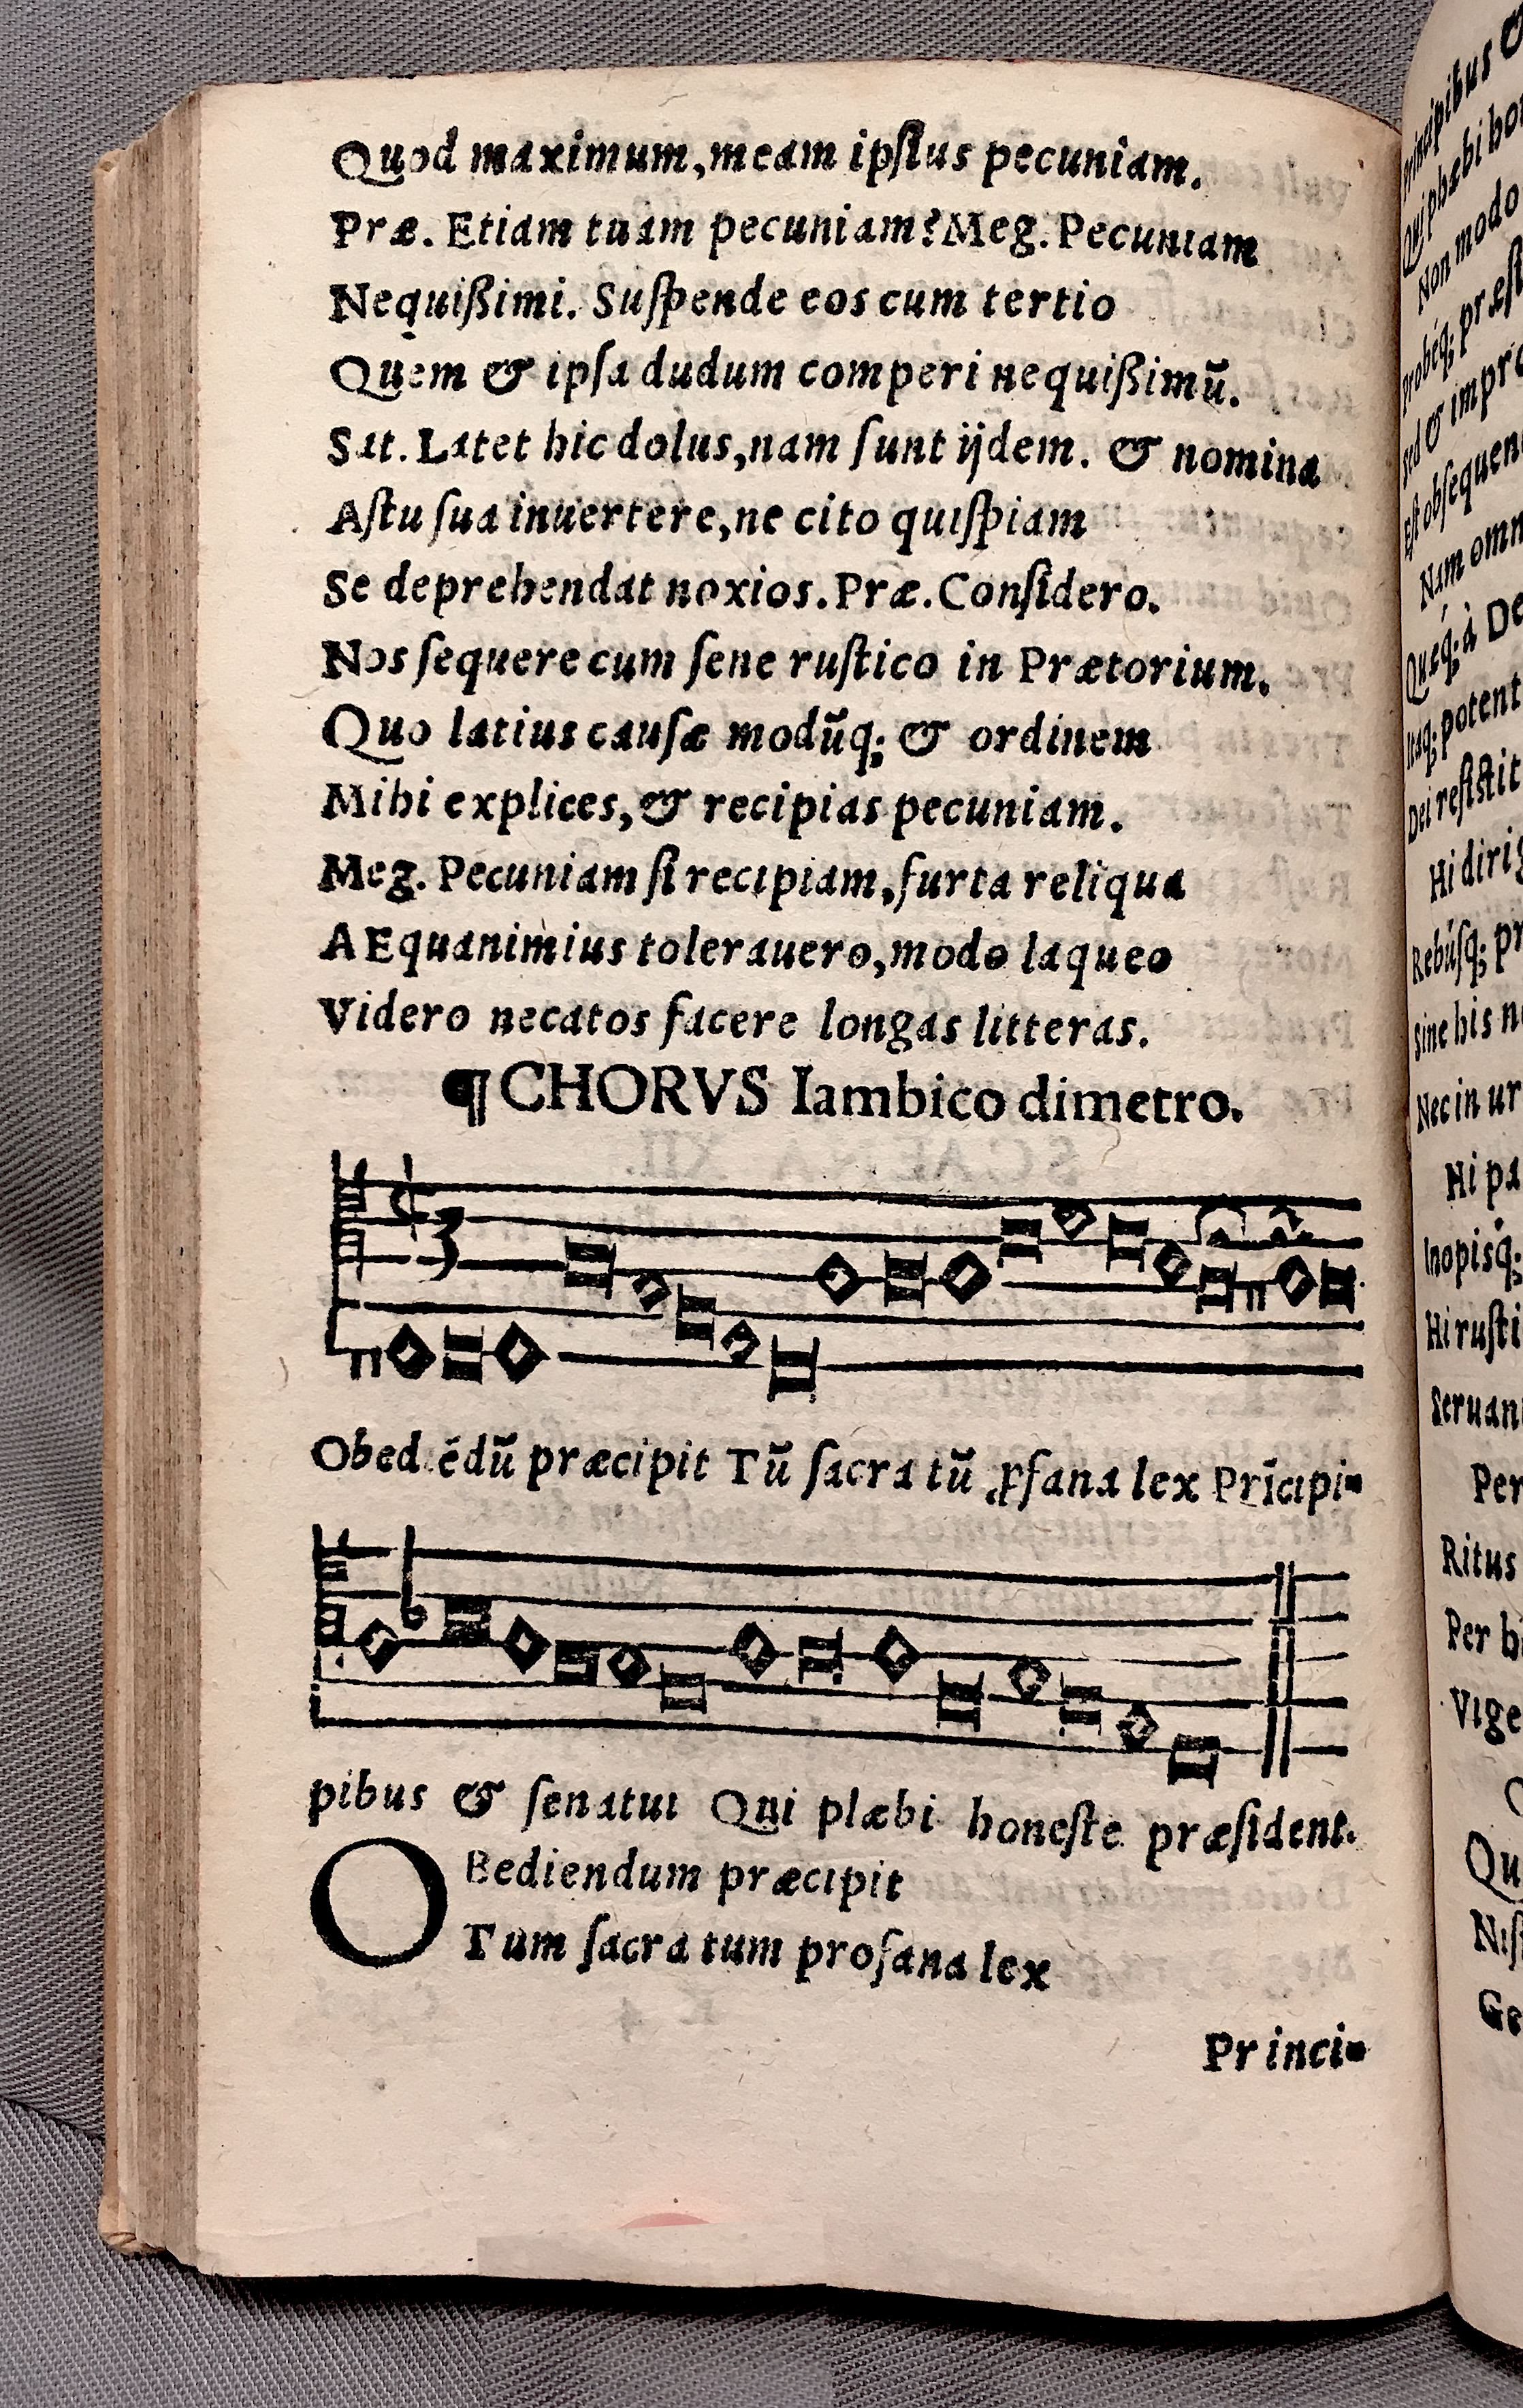 Quod maximum, meam ipsius pecuniam.
Præ. Etiam tuam pecuniam? Meg. Pecuniam
Nequißimi. Suſpende eos cum tertio
Quem & ipſa dudum comperi nequißimū.
Sat. Latet hic dolus, nam ſunt ijdem. & nomina
Aſtu ſua inuertere, ne cito quiſpiam
Se deprehendat noxios. Præ. Conſidero.
Nos ſequere cum ſene ruſtico in Prætorium.
Quo latius cauſæ modūq; & ordinem
Mihi explices, & recipias pecuniam.
Meg. Pecuniam ſi recipiam, furta reliqua
AEquanimius tolerauero, modo laqueo
Videro necatos facere longas litteras.
¶ CHORVS Iambico dimetro.
Obediēdū præcipit Tū ſacra tū ꝓfana lex Prīcipi-
pibus & ſenatui Qui plæbi honeſte præſident.
OBediendum præcipit
Tum ſacra tum profana lex
Princi-
Principibus &
Qui phæbi hon
Non modo
Probéq; præſi
Sed & impro
Eſt obſequen
Nam omn
Quęq; à De
Itaq; potent
Dei reſiſtit
Hi dirig
Rebúſq; pr
Sine his n
Nec in ur
Hi pa
Inopiſq;
Hi ruſti
Seruan
Per
Ritus
Per hi
Vige
Qu
Niſ
Ge